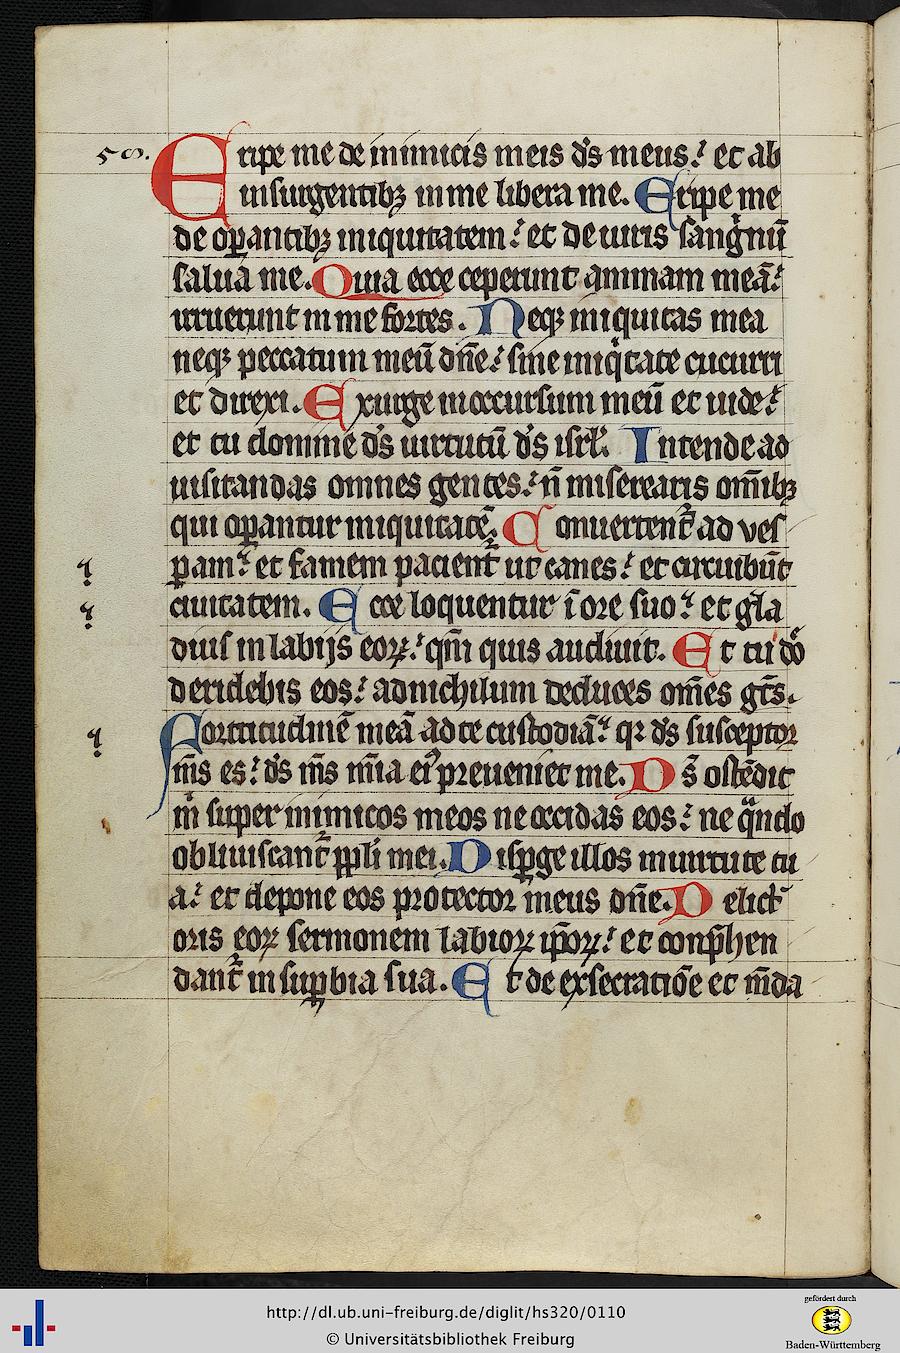 58.
Eripe me de inimicis meis ds̄ meus: et ab
insurgentibꝫ in me libera me. Eripe me
de oꝑantibꝫ iniquitatem: et de uiris sangͥnū
salua me. Quia ecce ceperunt animam meā:
irruerunt in me fortes. Neqꝫ iniquitas mea
neqꝫ peccatum meū dn̄e: sine iniqͥtate cucurri
et direxi. Exurge in occursum meū et uide:
et tu domine ds̄ uirtutū ds̄ isrl̄. Intende ad
uisitandas omnes gentes: n̄ miserearis om̄ibꝫ
qui oꝑantur iniquitatē. Conuertent᷑ ad ves
ꝑam: et famem pacient᷑ ut canes: et circuibūt
ciuitatem. Ecce loquentur ī ore suo: et gla
dius in labijs eoꝝ: qm̄ quis audiuit. Et tu dō
deridebis eos: ad nichilum deduces om̄es gēs.
Fortitudinē meā ad te custodiā: qꝛ ds̄ susceptor
m̄s es: ds̄ m̄s mīa eiꝰ preueniet me. Ds̄ ostēdit
m̄ super inimicos meos ne occidas eos: ne qͣndo
obliuiscant᷑ ppl̄i mei. Disꝑge illos in uirtute tu
a: et depone eos protector meus dn̄e. Delict
oris eoꝝ sermonem labioꝝ ip̄oꝝ: et conp̄hen
dant᷑ in suꝑbia sua. Et de exsecratiōe et m̄da
http://dl.ub.uni-freiburg.de/diglit/hs320/0110
© Universitätsbibliothek Freiburg
gefördert durch
Baden-Württemberg